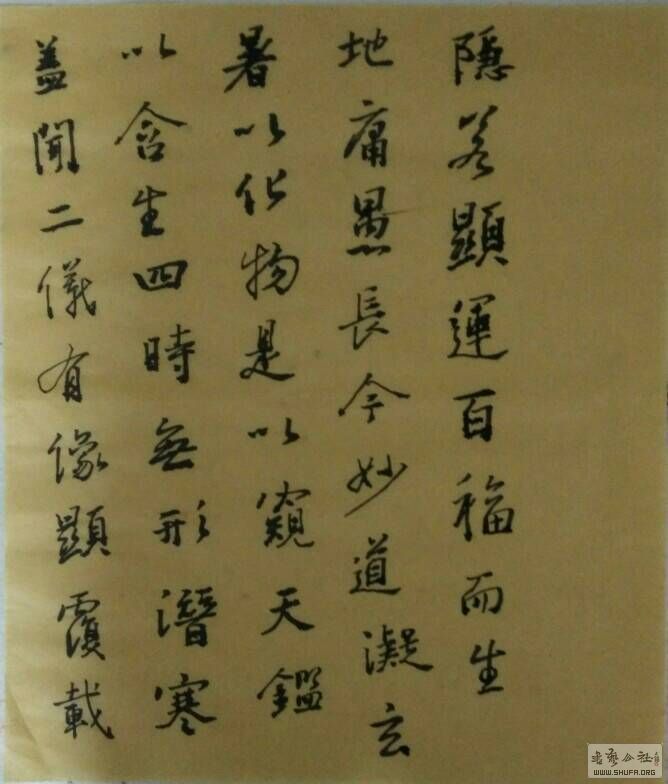 蓋聞二儀有像顯覆載
以含生四時無形潛寒
暑以化物是以窺天鑑
地庸愚長今妙道凝玄
隱若顯運百福而生
書藝公社
WWW.SHUFA.ORG